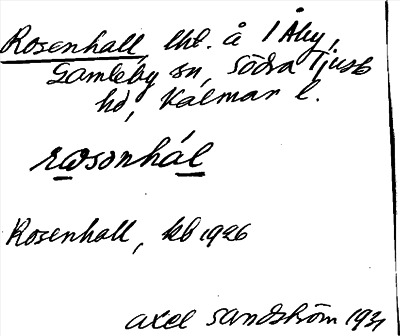 Rosenhall, lht. å 1 Åby,
Gamleby sn, Södra Tjust
hd, Kalmar l.
ròsonhál
Rosenhall, kb 1926
Axel Sandström 1931